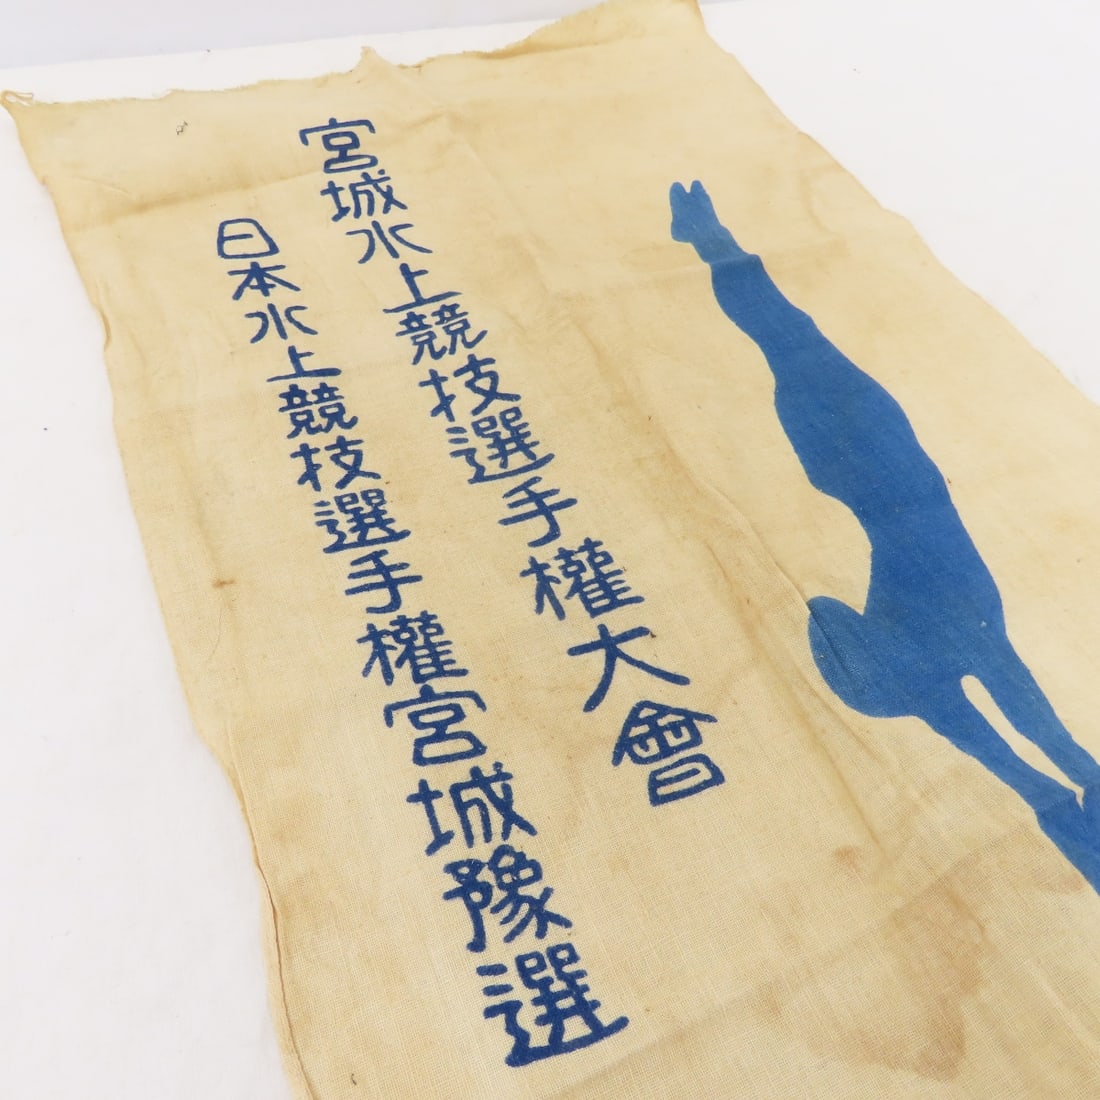 宮城水上競技選手權大會
日本水上競技選手權宮城豫選